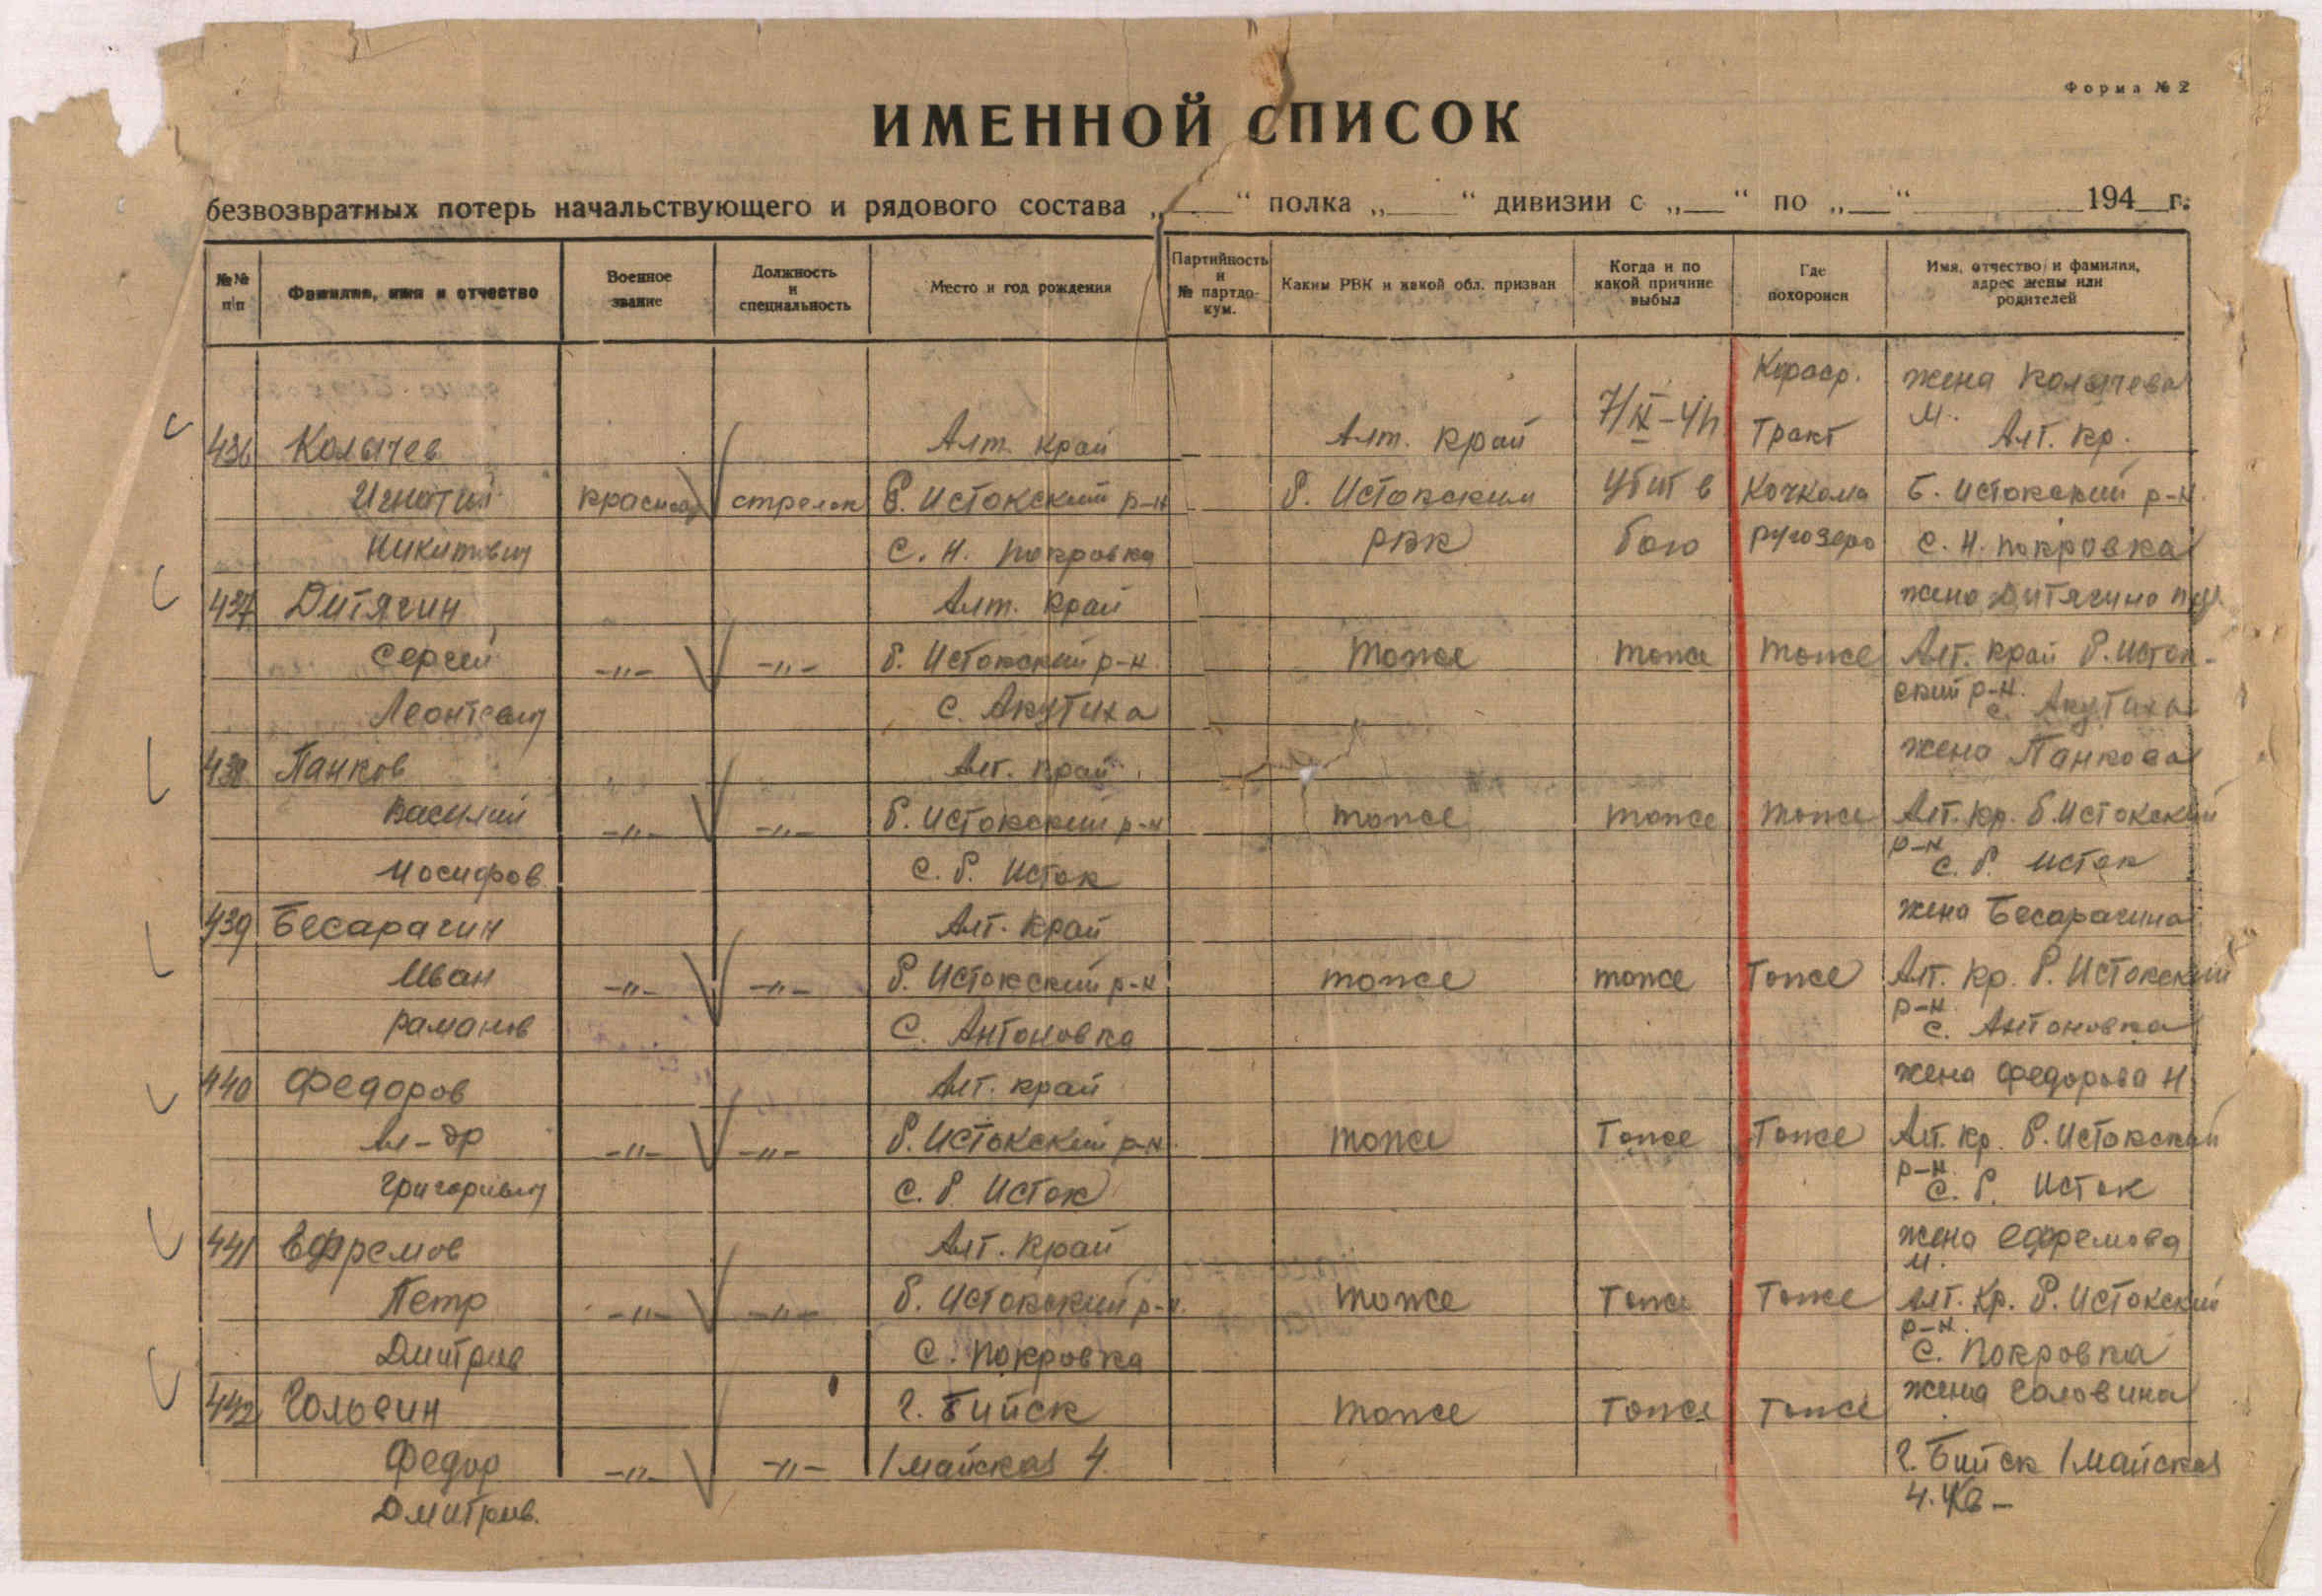 Форма № 2
ИМЕННОЙ СПИСОК
безвозвратных потерь начальствующего и рядового состава „___“ полка „___“ дивизии с „___“ по „___“ ______ 194__г.
№№ п/п
Фамилия, имя и отчество
Военное звание
Должность и специальность
Место и год рождения
Партийность и № партдокум.
Каким РВК и какой обл. призван
Когда и по какой причине выбыл
Где похоронен
Имя, отчество и фамилия, адрес жены или родителей
жена Колычева
436 Колычев Алт. край Алт. край 7/IX-41 Тракт М. Алт. кр.
Игнатий стрелок Б. Истокский р-н Б. Истокским убит в Кочкома Б. Истокский р-н
Никитович С. Н. Покровка РВК бою Ругозеро С. Н. Покровка
437 Дитягин Алт. край жена Дитягина
Сергей -"- -"- Б. Истокский р-н тоже тоже тоже Алт. край Б. Исток-
Леонтевич С. Акутиха ский р-н. с. Акутиха
438 Панков Алт. край жена Панкова
Василий -"- -"- Б. Истокский р-н тоже тоже тоже Алт. кр. Б. Истокский
Иосифов С. Б. Исток р-н С. Б. Исток
439 Бесарагин Алт. край жена Бесарагина
Иван -"- -"- Б. Истокский р-н тоже тоже Тоже Алт. кр. Б. Истокский
Раманов С. Антоновка р-н с. Антоновка
440 Федоров Алт. край жена Федорова Н
Ал-др -"- -"- Б. Истокский р-н тоже Тоже Тоже Алт. кр. Б. Истокский
Григорьевич С. Б. Исток р-н С. Б. Исток
441 Ефремов Алт. край жена Ефремова М.
Петр -"- -"- Б. Истокский р-н. тоже Тоже Тоже Алт. Кр. Б. Истокский
Дмитрив С. Покровка р-н. С. Покровка
442 Головин г. Бийск тоже Тоже Тоже жена Головина
Федор -"- -"- 1 майская 4 г. Бийск 1 майская
Дмитрив. 4. Кв –